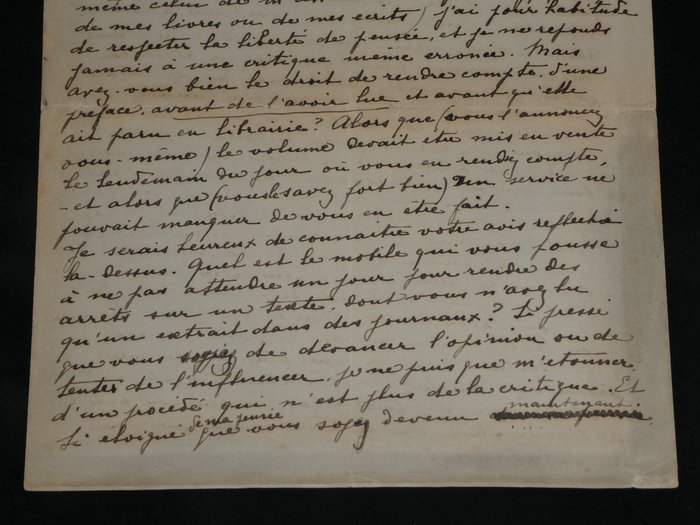 même celui de m'
de mes livres ou de mes écrits) j'ai pour habitude
de respecter la liberté de pensée, et je ne réponds
jamais à une critique même erronée. Mais
avez-vous bien le droit de rendre compte, d'une
préface, avant de l'avoir lue et avant qu'elle
ait paru en librairie? Alors que (vous l'annoncez
vous-même) le volume devait être mis en vente
le lendemain du jour où vous en rendiez compte,
-et alors que (vous le savez fort bien) un service ne
pouvait manquer de vous en être fait.
Je serais heureux de connaître votre avis réfléchi
là-dessus. Quel est le mobile qui vous pousse
à ne pas attendre un jour pour rendre des
arrêts sur un texte, dont vous n'avez lu
qu'un extrait dans des journaux? Si pressé
que vous soyez de devancer l'opinion ou de
tenter de l'influencer, je ne puis que m'étonner
d'un procédé qui n'est plus de la critique. Et
si éloigné de ma pensée que vous soyez devenu maintenant.